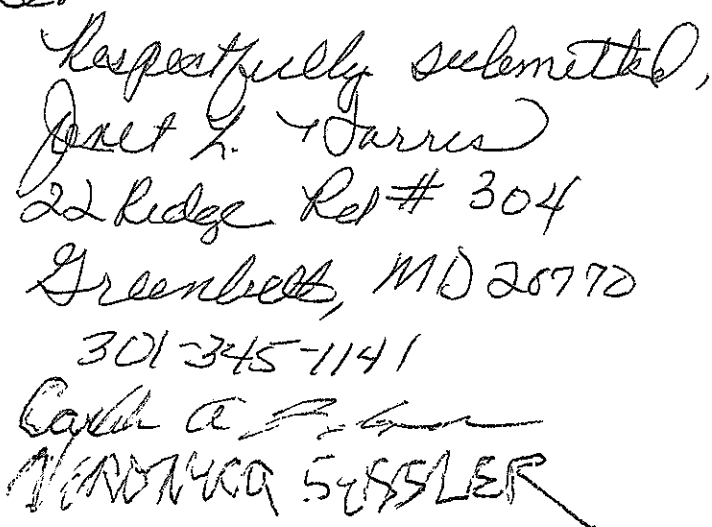 Respectfully submitted,
Janet L. Harris
22 Ridge Rd # 304
Greenbelt, MD 20770
301-345-1141
A
VERONICA